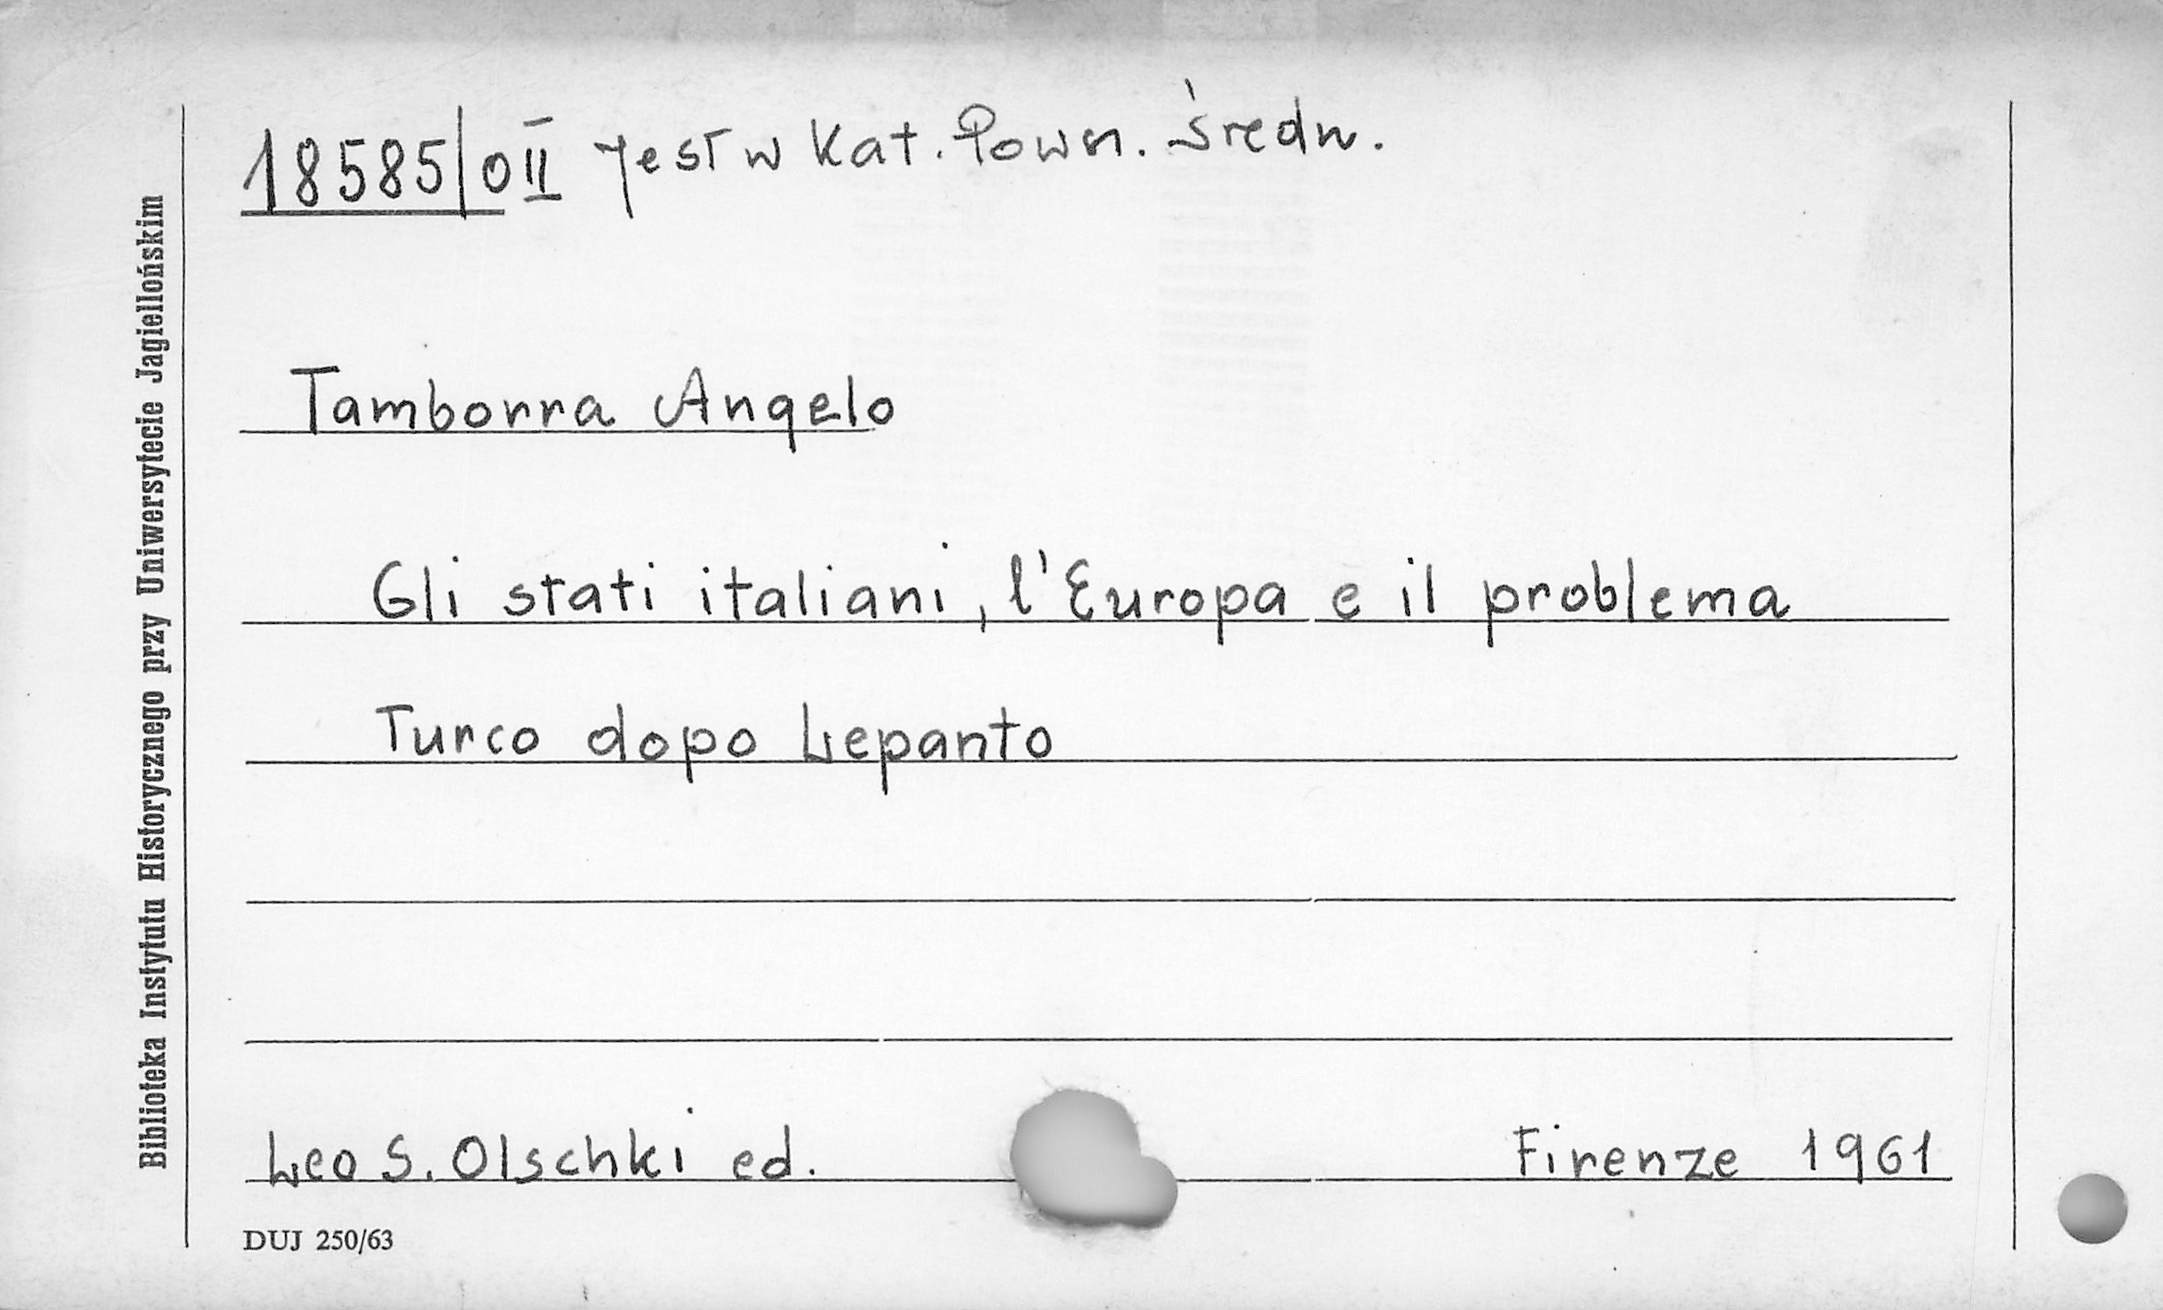 18585/0II Jest w Kat. Pown. Średn.
Tamborra Angelo
Gli stati italiani, l'Europa e il problema
Turco dopo Lepanto
Leo S. Olschki ed. Firenze 1961
DUJ 250/63
Biblioteka Instytutu Historycznego przy Uniwersytecie Jagiellońskim